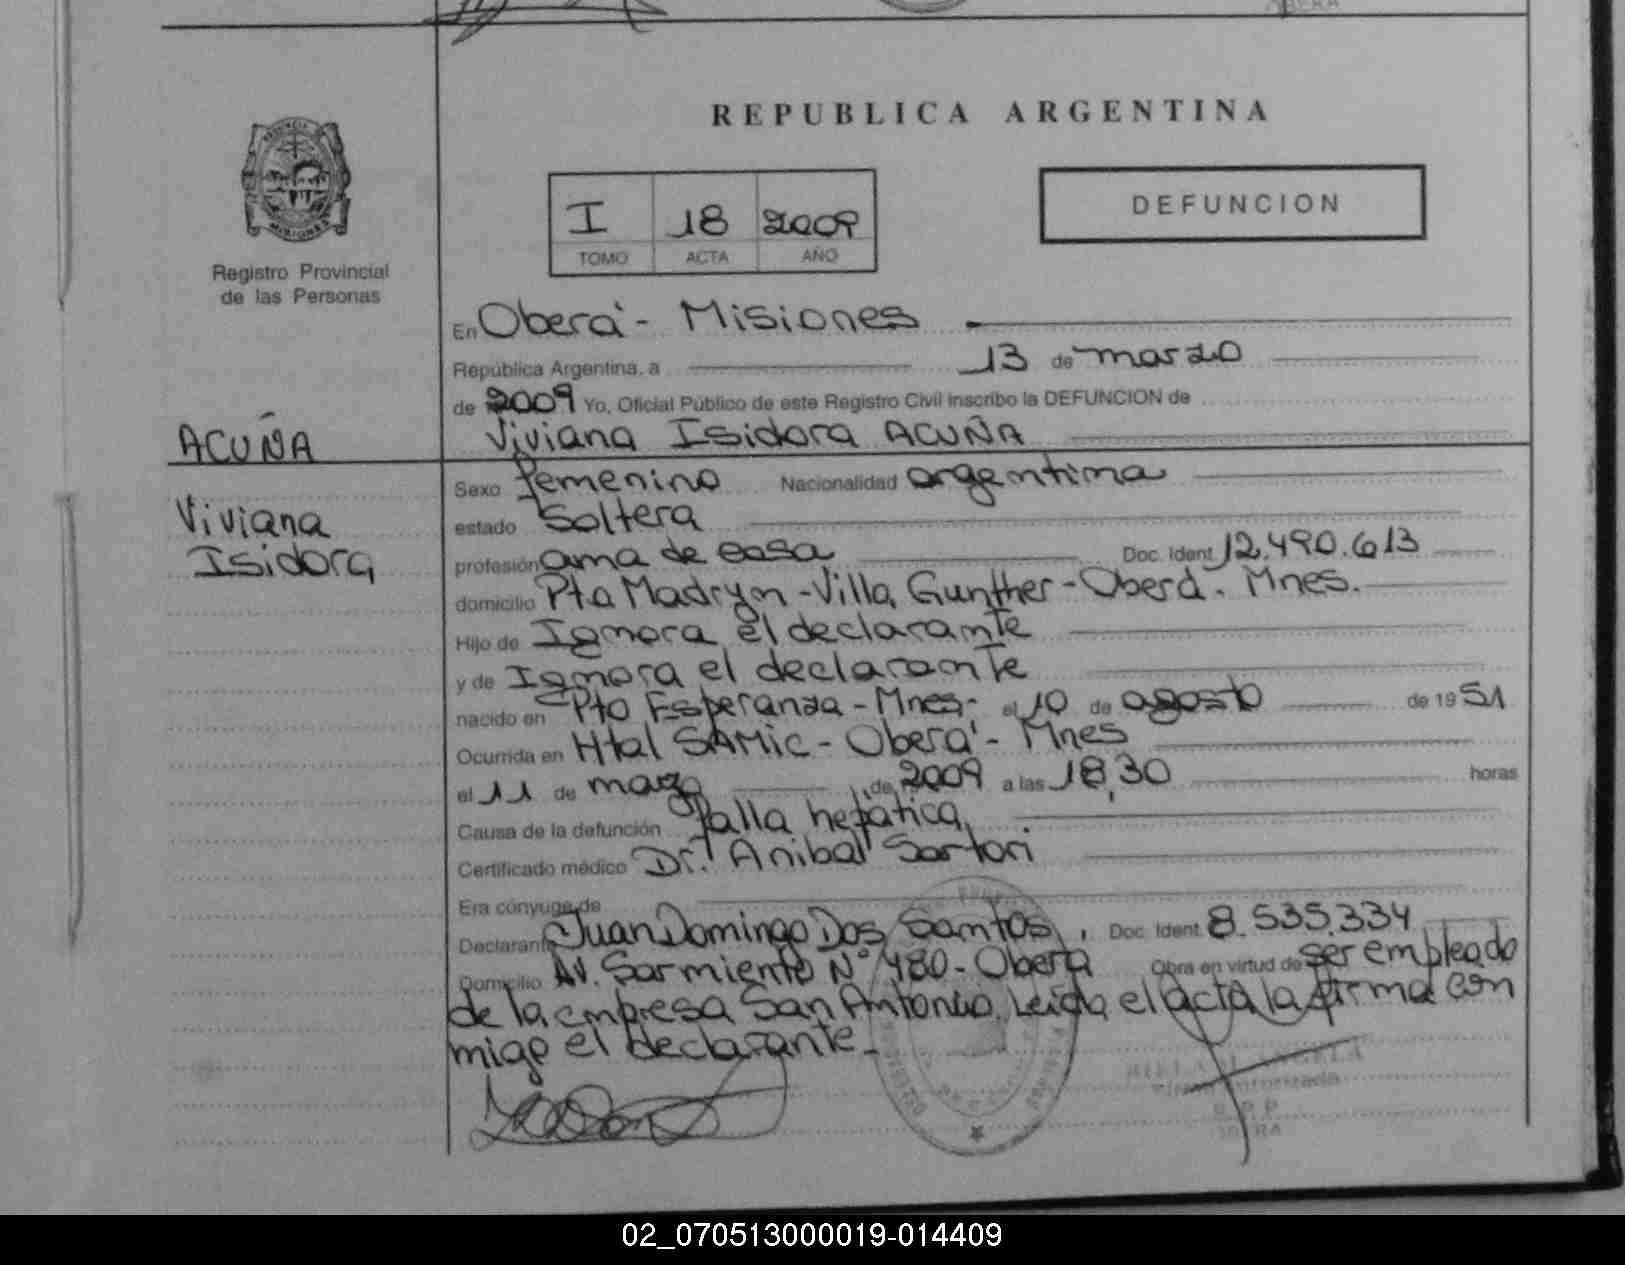 REPUBLICA ARGENTINA
I 18 2009
TOMO ACTA AÑO
DEFUNCION
Registro Provincial
de las Personas
ACUÑA
Viviana
Isidora
En Oberá - Misiones
República Argentina, a 13 de marzo
de 2009 Yo, Oficial Público de este Registro Civil inscribo la DEFUNCION de
Viviana Isidora ACUÑA
Sexo femenino Nacionalidad argentina
estado Soltera
profesión ama de casa Doc. Ident. 12.490.613
domicilio Pto Madryn - Villa Gunther - Oberá. Mnes.
Hijo de Ignora el declarante
y de Ignora el declarante
nacido en Pto Esperanza - Mnes. el 10 de agosto de 1951
Ocurrida en Htal SAMic - Oberá - Mnes
el 11 de marzo de 2009 a las 18,30 horas
Causa de la defunción falla hepática
Certificado médico Dr. Anibal Sartori
Era cónyuge de
Declarante Juan Domingo Dos Santos, Doc. Ident. 8.535.334
Domicilio Av. Sarmiento N° 480 - Oberá Obra en virtud de ser empleado
de la empresa San Antonio. Leida el acta la firma con
migo el declarante.
02_070513000019-014409